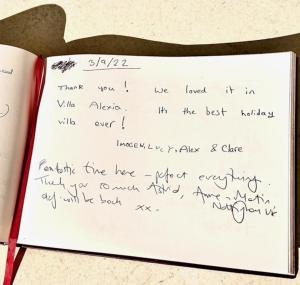 3/9/22
Thank you! We loved it in
Villa Alexia. Its the best holiday
villa ever!
IMOGEN, LUCY, Alex & Clare
Fantastic time here – perfect everything.
Thank you so much Astrid, Anne-
will be back xx.